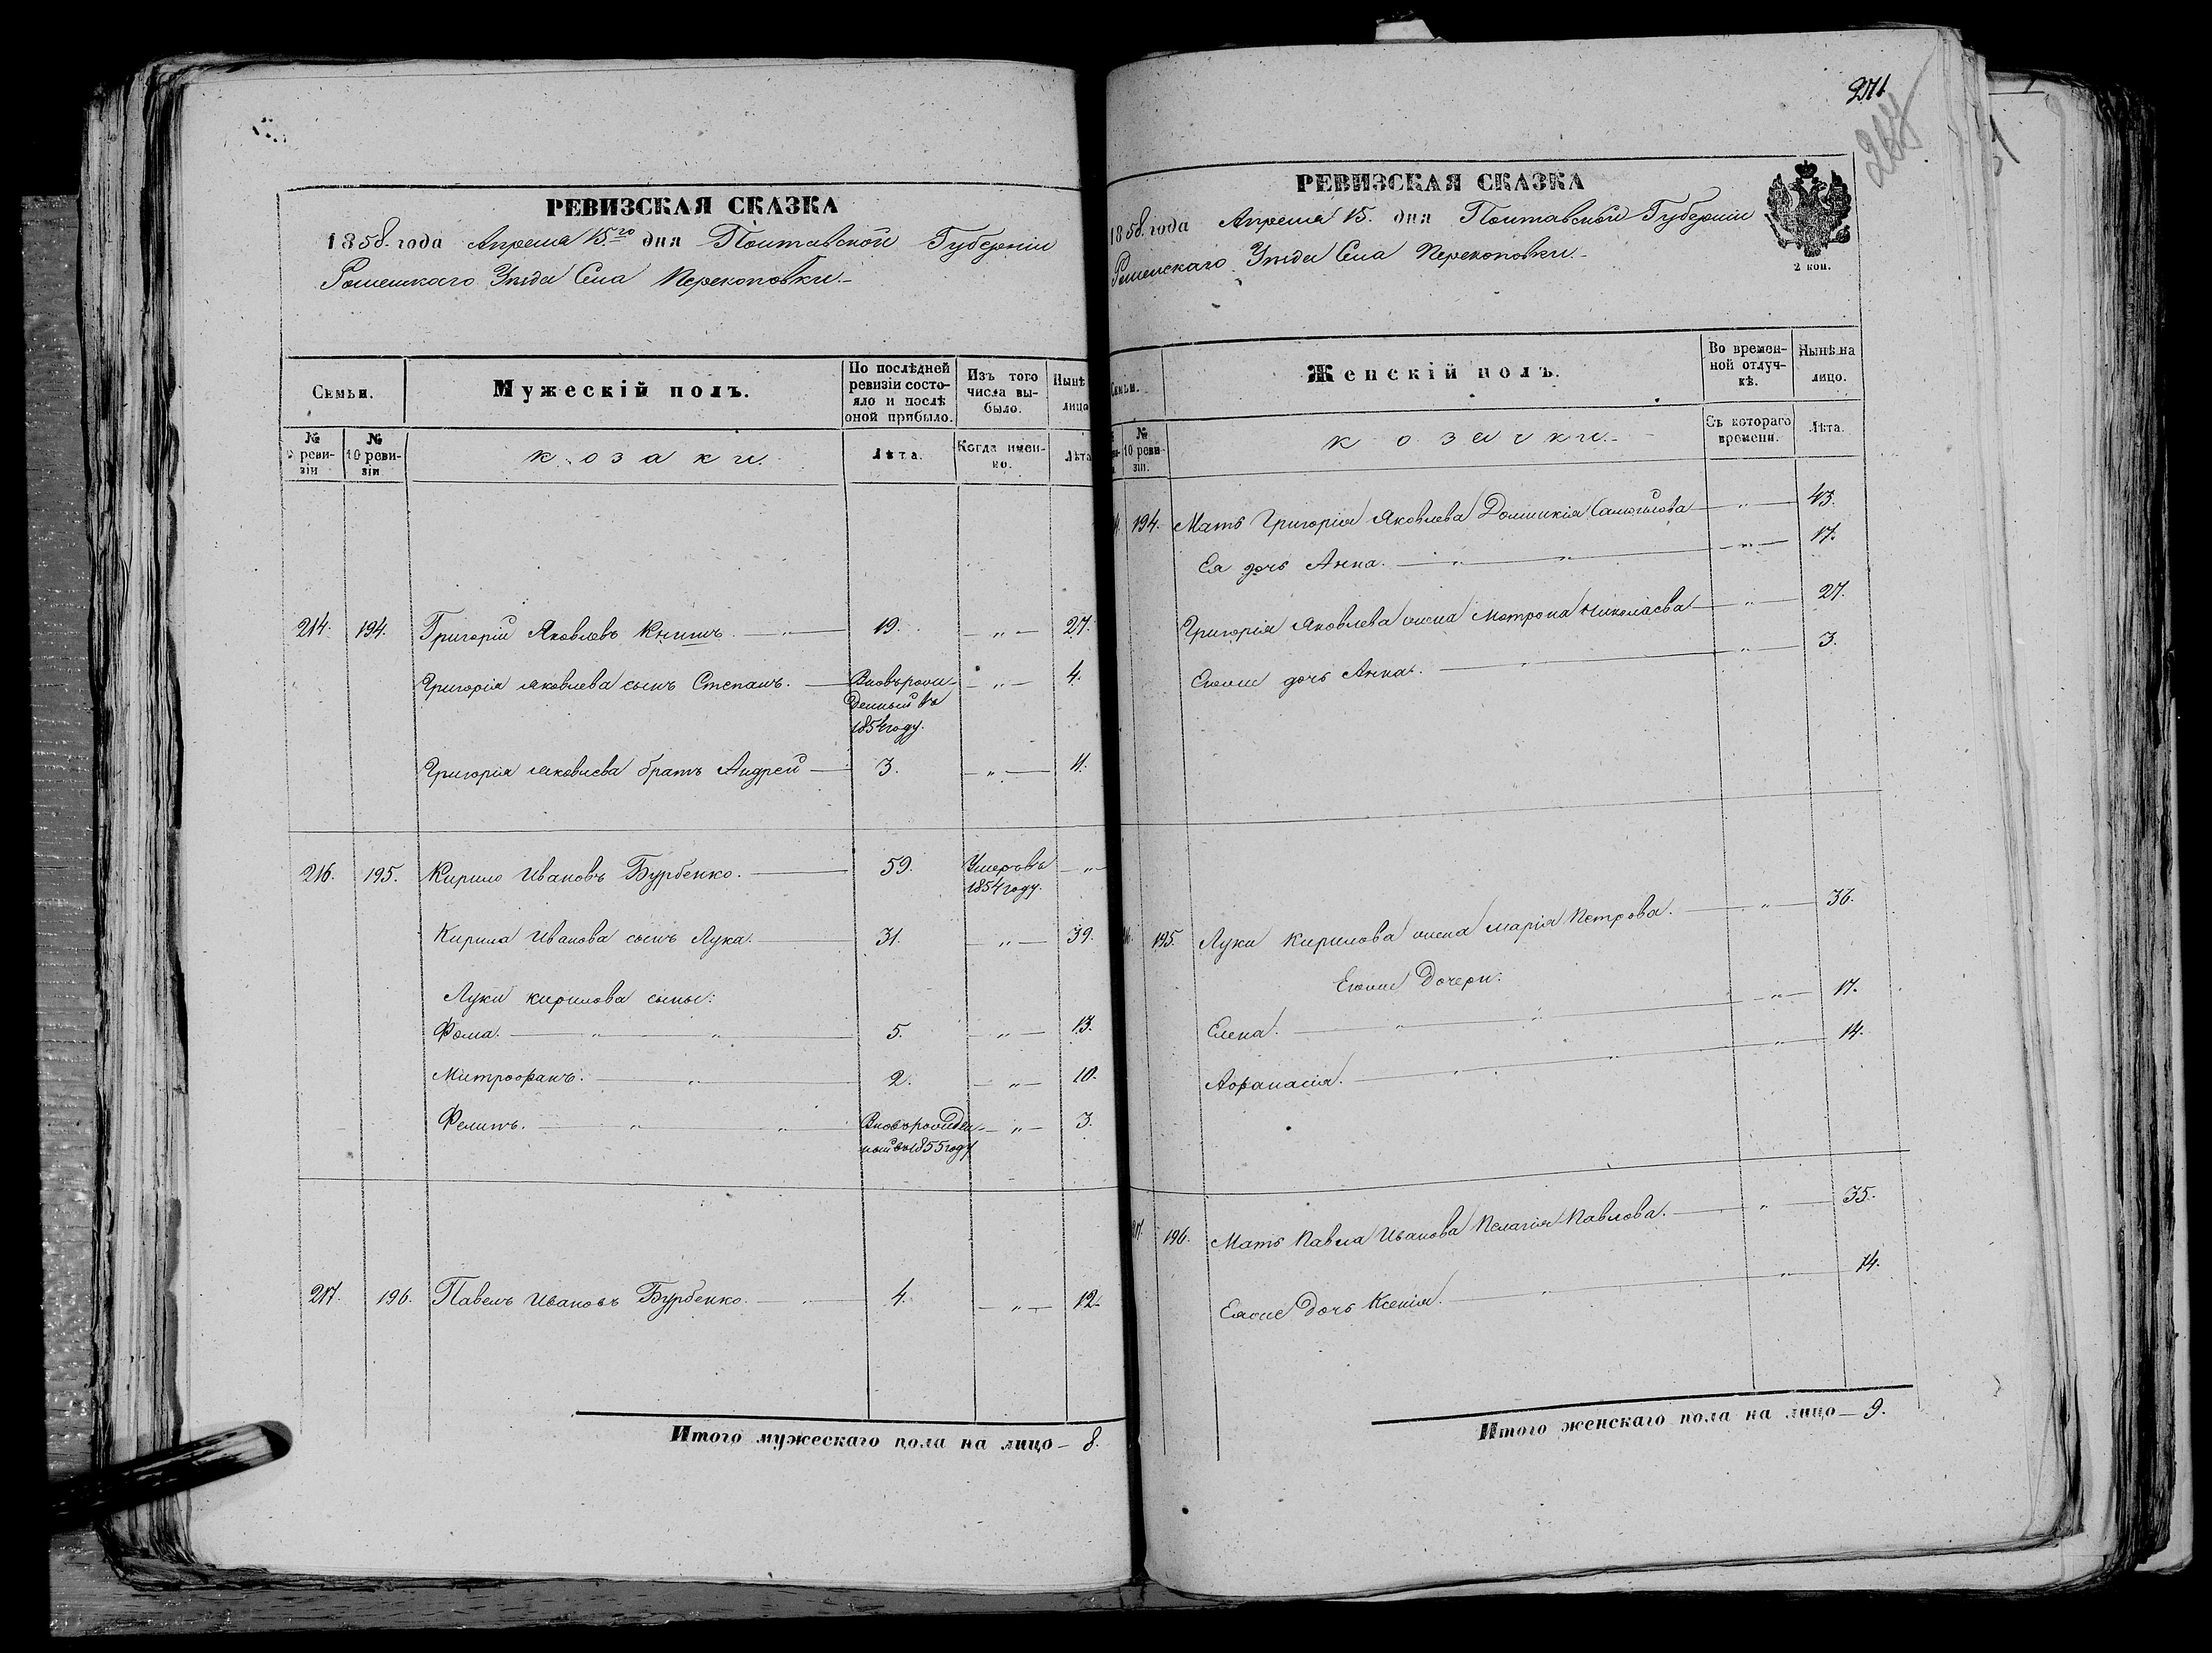 РЕВИЗСКАЯ СКАЗКА
1858. года Апреля 15го дня Полтавской Губерніи
Роменскаго Уѣзда Села Перекоповки.
Семьи.
Мужескій полъ.
По послѣдней ревизіи состояло и послѣ оной прибыло.
Изъ того числа выбыло.
Нынѣ лицо
№ ревизіи
№ 10 ревизіи
козаки.
Лѣта.
Когда именно.
Лѣта
214. 194. Григорій Яковлевъ Книшъ. 19. „ 27.
Григорія Яковлева сынъ Степанъ. Вновьрожденный въ 1854 году. „ 4.
Григорія Яковлева братъ Андрей 3. „ 11.
216. 195. Кирило Ивановъ Бурбенко. 59. Умеръ въ 1854 году. „
Кирила Иванова сынъ Лука. 31. „ 39.
Луки Кирилова сыны:
Фома. „ „ 5. „ 13.
Митрофанъ. „ 2. „ 10.
Филипъ. „ „ Вноворожденный въ 1855 году „ 3.
217. 196. Павелъ Ивановъ Бурбенко. 4. „ 12.
Итого мужескаго пола на лицо — 8.
271
РЕВИЗСКАЯ СКАЗКА
1858. года Апреля 15. дня Полтавской Губерніи
Роменскаго Уѣзда Села Перекоповки.
2 коп.
Семьи.
Женскій полъ.
Во временной отлучкѣ.
Нынѣ на лицо.
№ 10 ревизіи.
козачки.
Съ котораго времени.
Лѣта.
194. Мать Григорія Яковлева Домникія Самойлова „ 43.
Ея дочь Анна. „ „ „ 17.
Григорія Яковлева жена Матрона Николаева „ 27.
Егоже дочь Анна. „ „ 3.
195. Луки Кирилова жена Марія Петрова. „ 36.
Егоже Дочери:
Елена. „ „ „ 17.
Афанасія. „ „ „ 14.
196. Мать Павла Иванова Пелагія Павлова. „ 35.
Еяже Дочь Ксенія. „ „ 14.
Итого женскаго пола на лицо — 9.